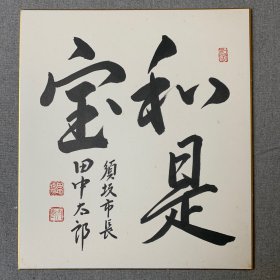 和是
宝
須坂市長
田中太郎